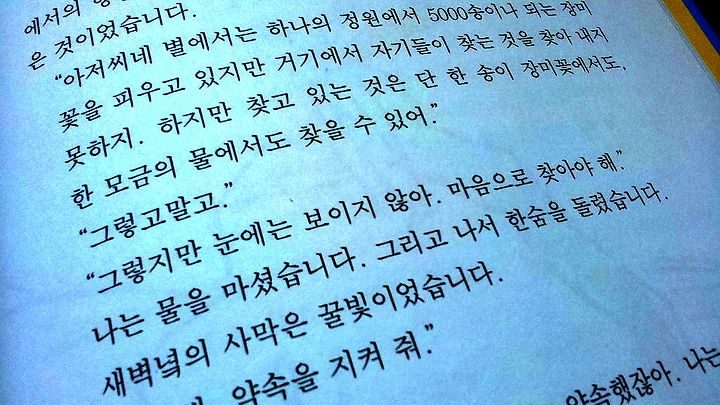 에서의
은 것이었습니다.
“아저씨네 별에서는 하나의 정원에서 5000송이나 되는 장미
꽃을 피우고 있지만 거기에서 자기들이 찾는 것을 찾아 내지
못하지. 하지만 찾고 있는 것은 단 한 송이 장미꽃에서도,
한 모금의 물에서도 찾을 수 있어.”
“그렇고말고.”
“그렇지만 눈에는 보이지 않아. 마음으로 찾아야 해.”
나는 물을 마셨습니다. 그리고 나서 한숨을 돌렸습니다.
새벽녘의 사막은 꿀빛이었습니다.
약속을 지켜 줘.”
약속했잖아. 나는